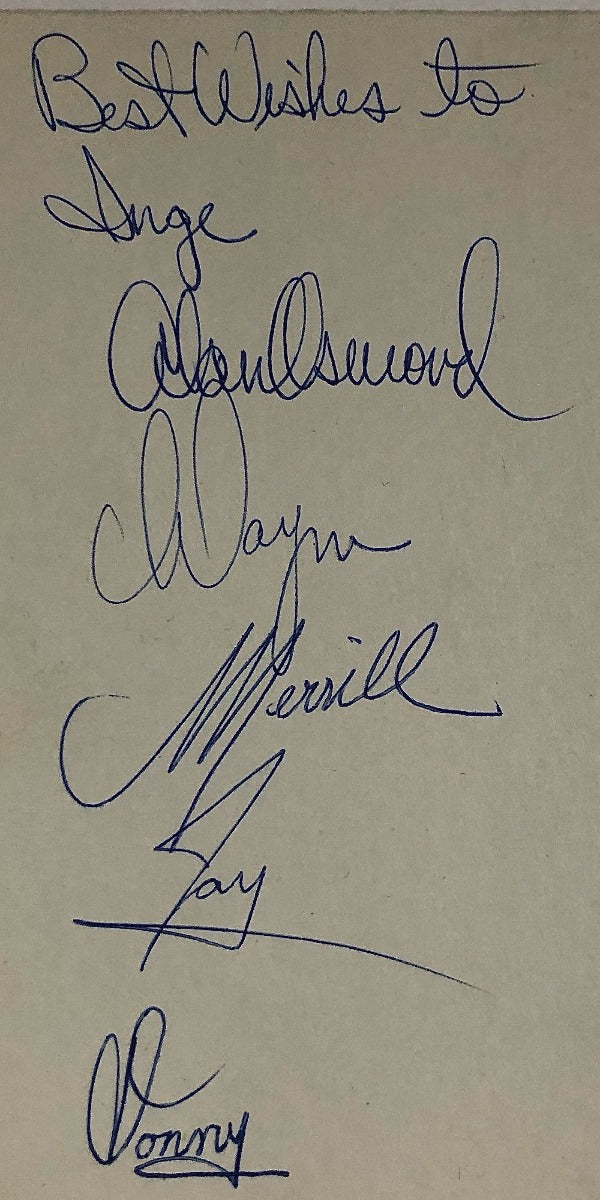 Best Wishes to
Ange
Alan Osmond
Wayne
Merrill
Jay
Donny